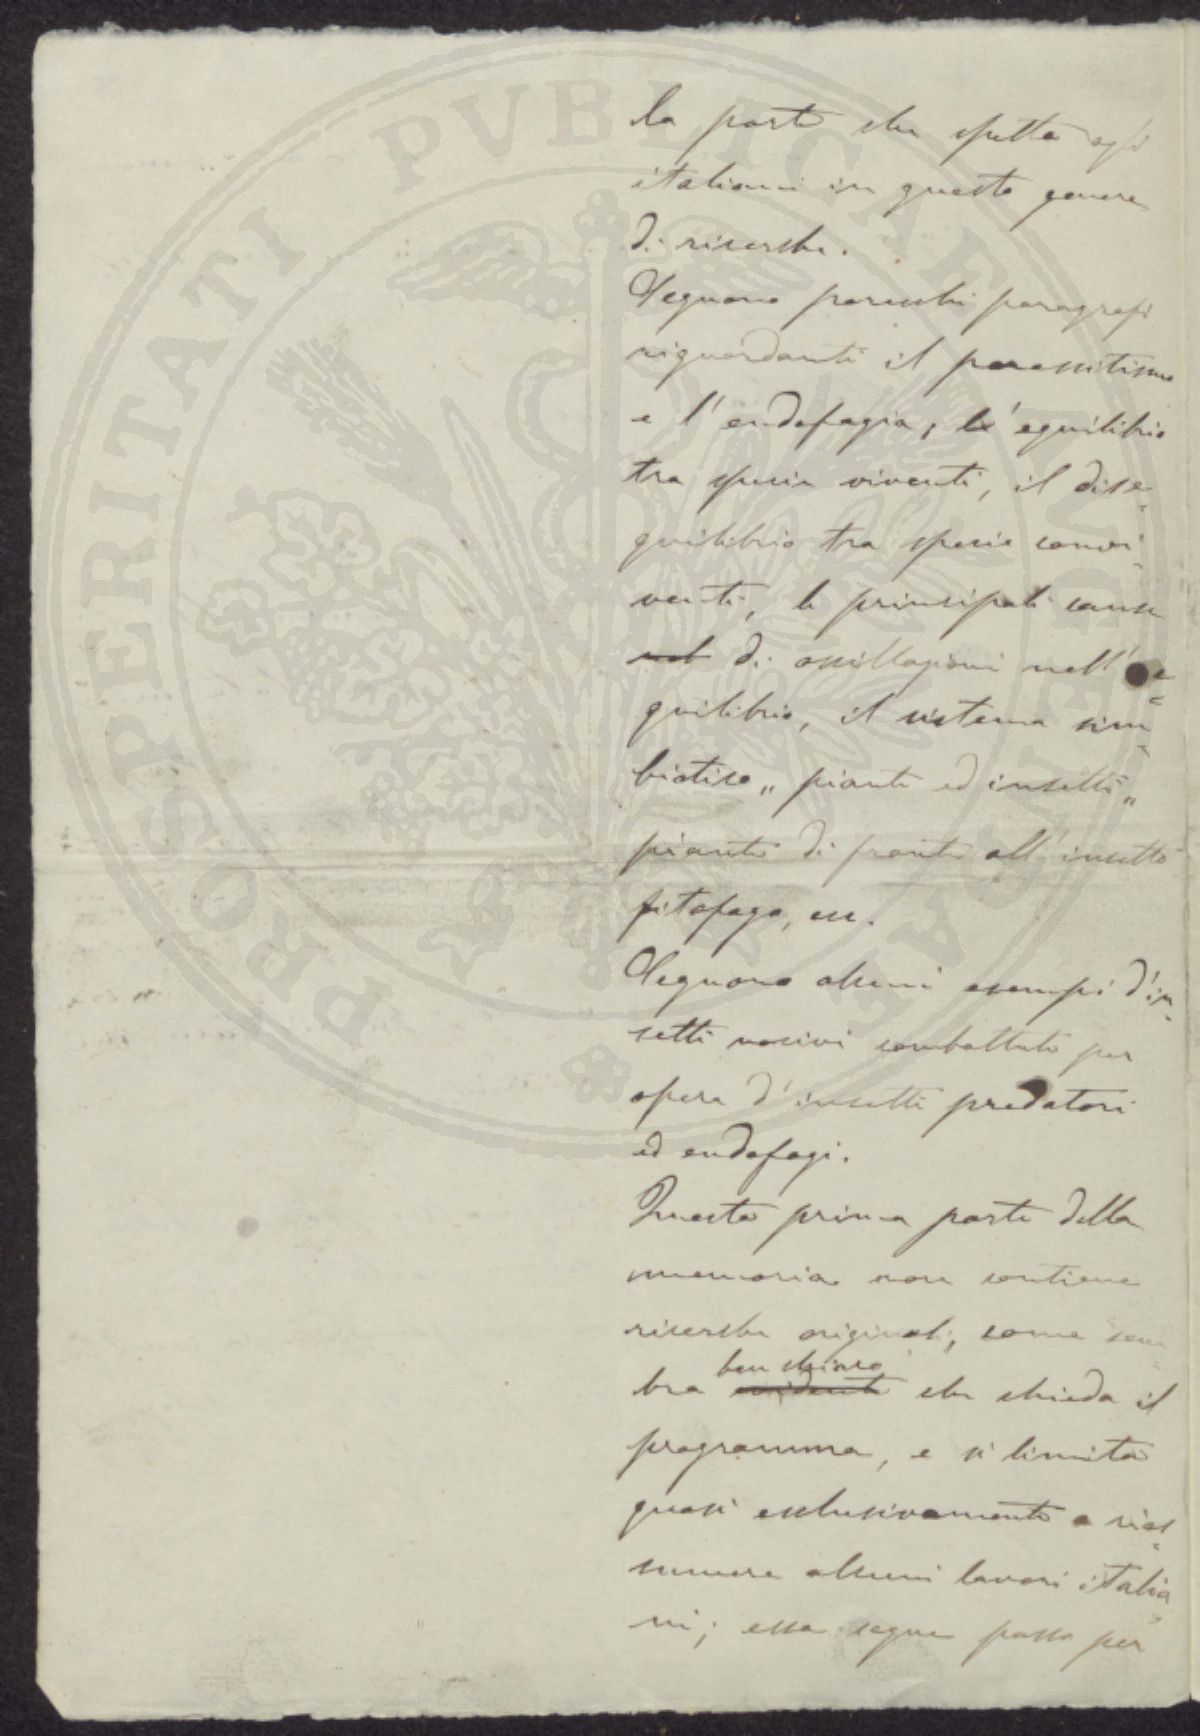 PROSPERITATI PVBLICAE AVGENDAE
la parte che spetta agli
italiani in questo genere
di ricerche.
Seguono parecchi paragrafi
riguardanti il parassitismo
e l'endofagia, l'equilibrio
tra specie viventi, il dise-
quilibrio tra specie convi-
venti, le principali cause
nel di oscillazioni nell'e-
quilibrio, il sistema sim-
biotico „ piante ed insetti „
piante di fronte all'insetto
fitofago, ecc.
Seguono alcuni esempi d'in-
setti nocivi combattuti per
opera d'insetti predatori
ed endofagi.
Questa prima parte della
memoria non contiene
ricerche originali, come sem-
ben chiaro
bra evidente che chieda il
programma, e si limita
quasi esclusivamente a rias-
sumere alcuni lavori italia-
ni; essa segue passo per